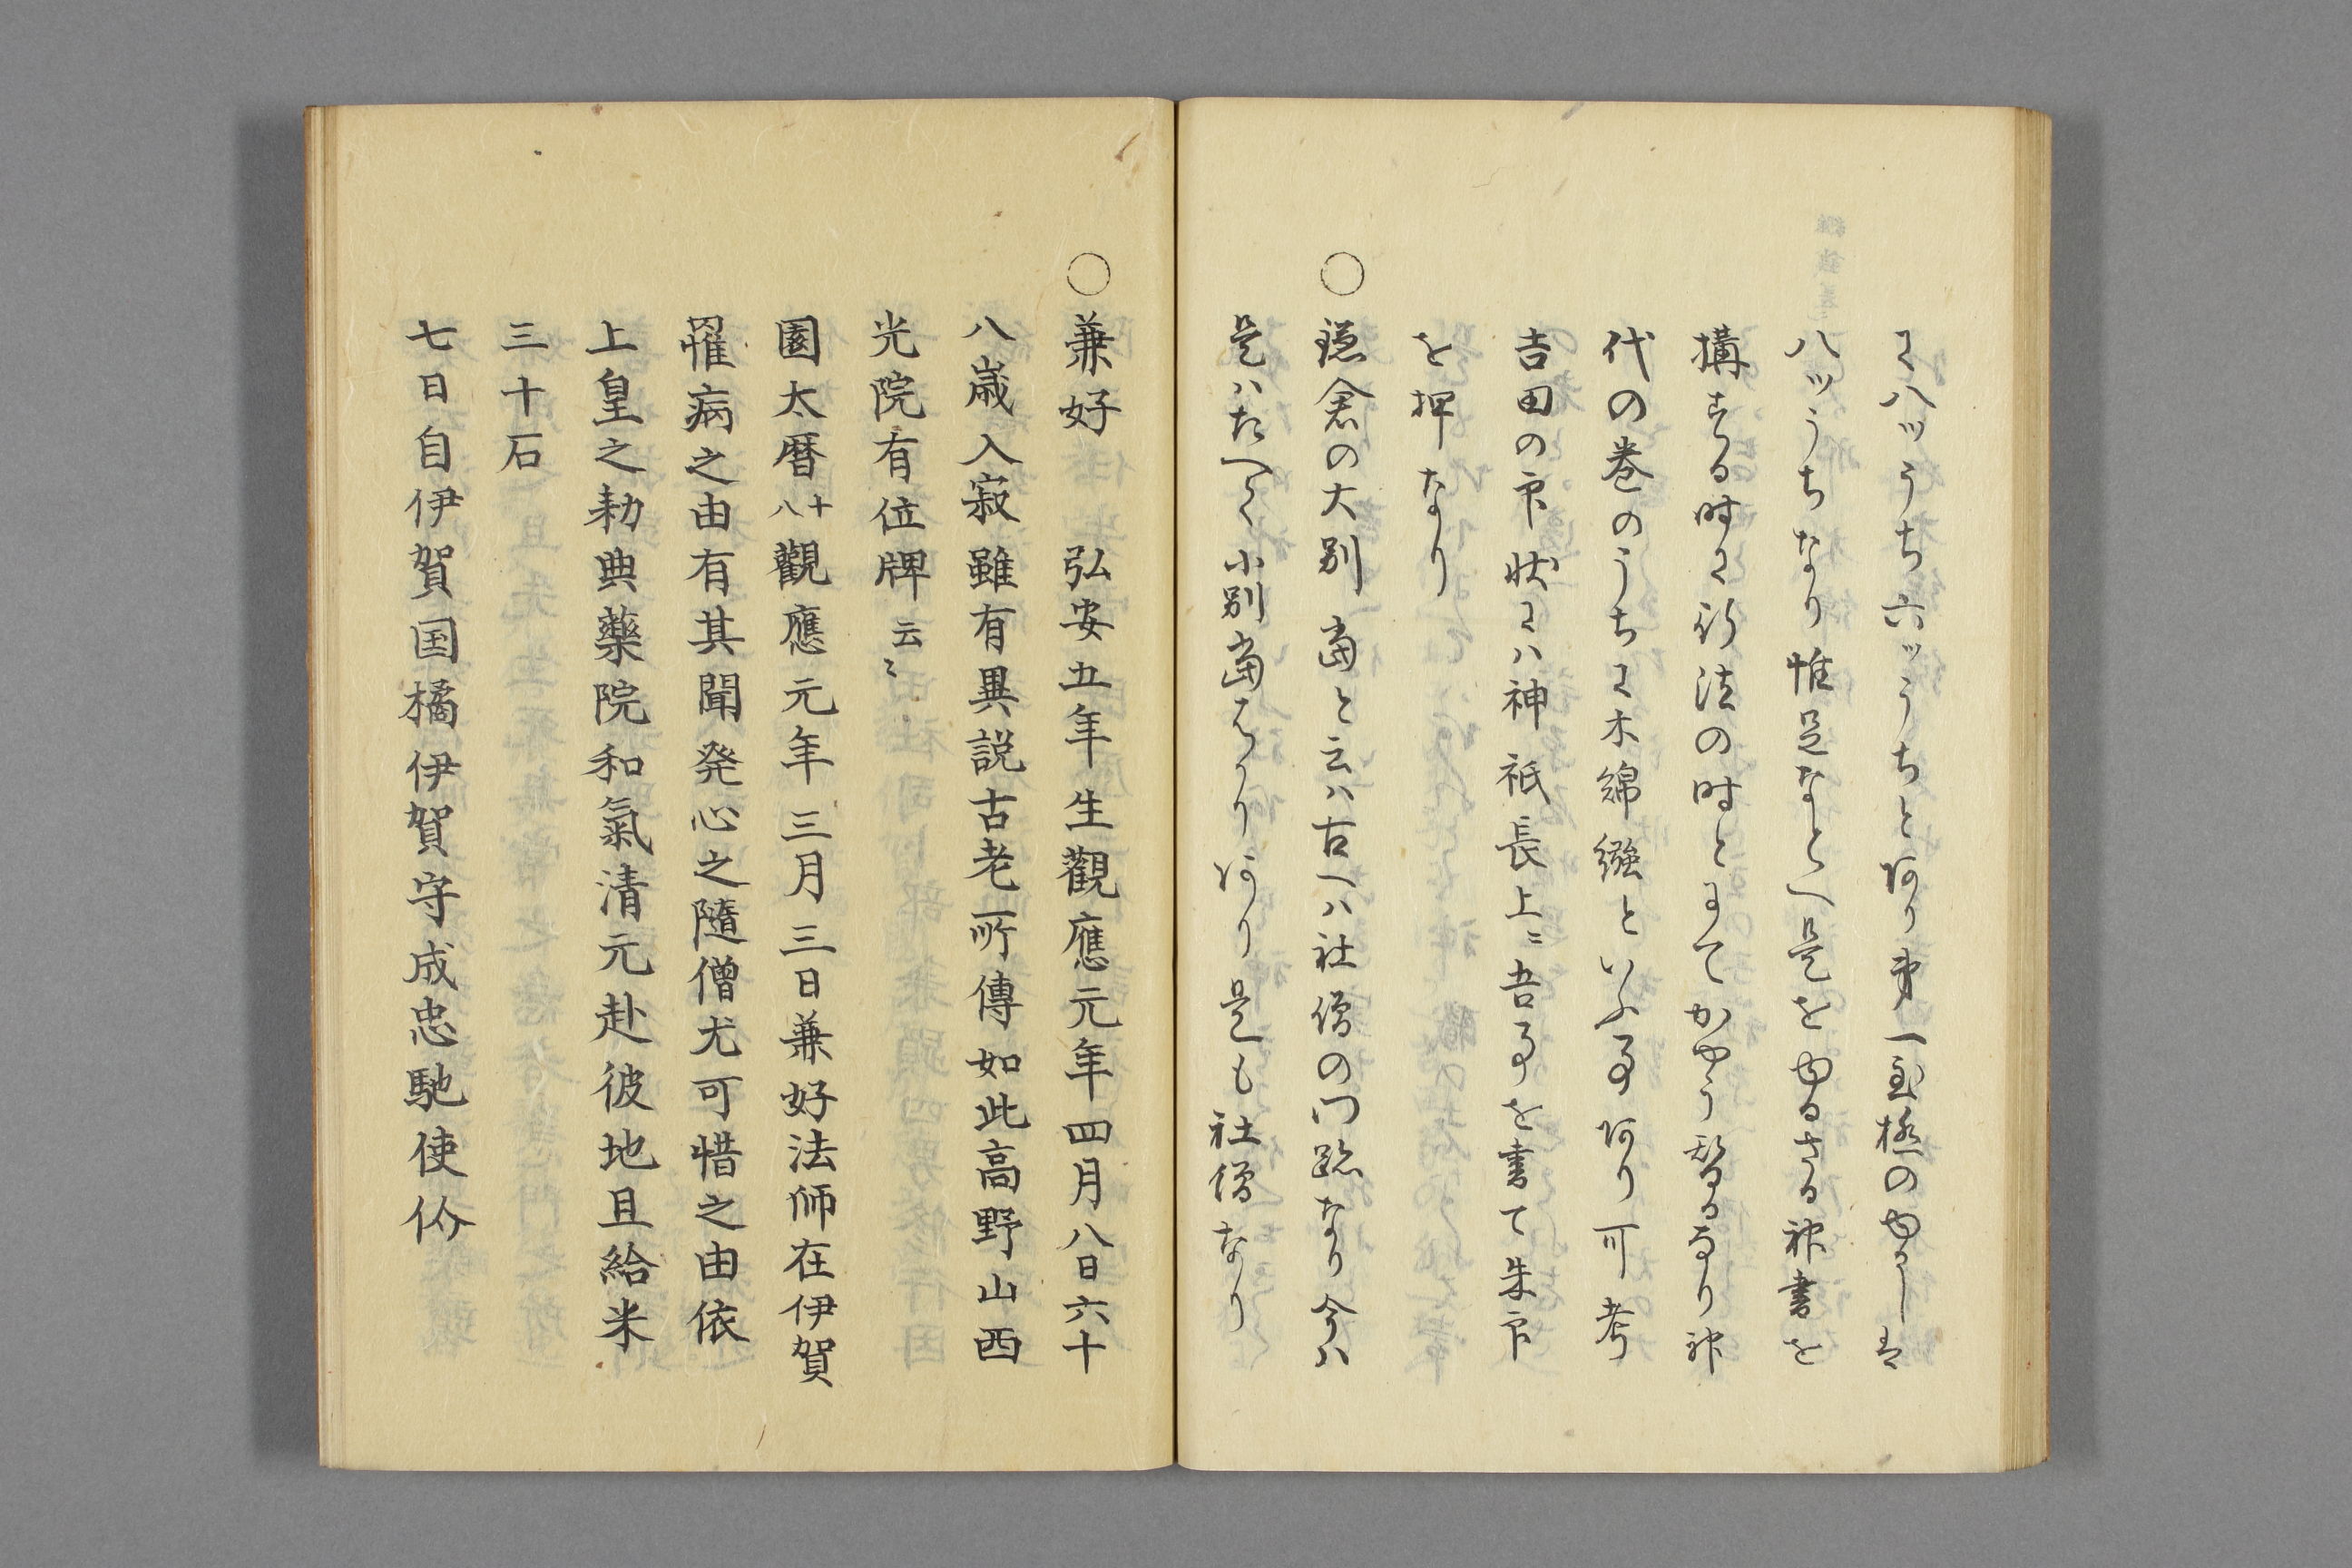 に八ツうち六ツうちとあり第一至極のゆるしは
八ツうちなり惟足なとへ是をゆるさる神書を
講する時に行法の時とまてかやう替るなり神
代の巻のうちに木綿繦といふ事あり可考
吉田の印状には神祇長上〻吾事を書て朱印
を押なり
○鎌倉の大別當と云は古へは社僧の門跡なり今は
是はたへて小別當はかりあり是も社僧なり
○兼好 弘安五年生觀應元年四月八日六十
八歳入寂雖有異説古老所傳如此高野山西
光院有位牌云〻
園太暦十八觀應元年三月三日兼好法師在伊賀
罹病之由有其聞発心之隨僧尤可惜之由依
上皇之勅典藥院和氣清元赴彼地且給米
三十石
七日自伊賀国橘伊賀守成忠馳使伱